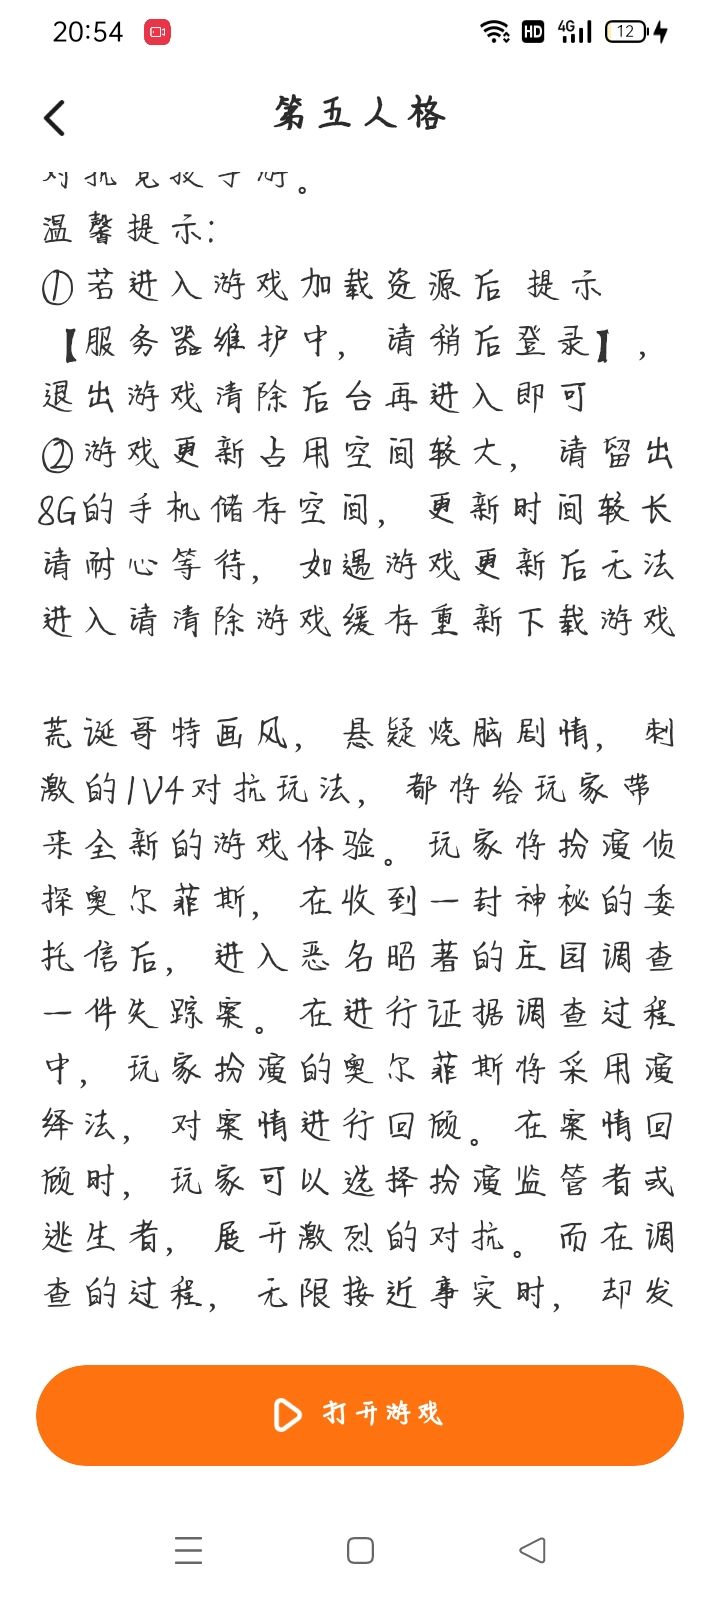 20:54
HD 4G 12
第五人格
对抗竞技手游。
温馨提示：
①若进入游戏加载资源后 提示
【服务器维护中，请稍后登录】，
退出游戏清除后台再进入即可
②游戏更新占用空间较大，请留出
8G的手机储存空间，更新时间较长
请耐心等待，如遇游戏更新后无法
进入请清除游戏缓存重新下载游戏
荒诞哥特画风，悬疑烧脑剧情，刺
激的1V4对抗玩法，都将给玩家带
来全新的游戏体验。玩家将扮演侦
探奥尔菲斯，在收到一封神秘的委
托信后，进入恶名昭著的庄园调查
一件失踪案。在进行证据调查过程
中，玩家扮演的奥尔菲斯将采用演
绎法，对案情进行回顾。在案情回
顾时，玩家可以选择扮演监管者或
逃生者，展开激烈的对抗。而在调
查的过程，无限接近事实时，却发
打开游戏